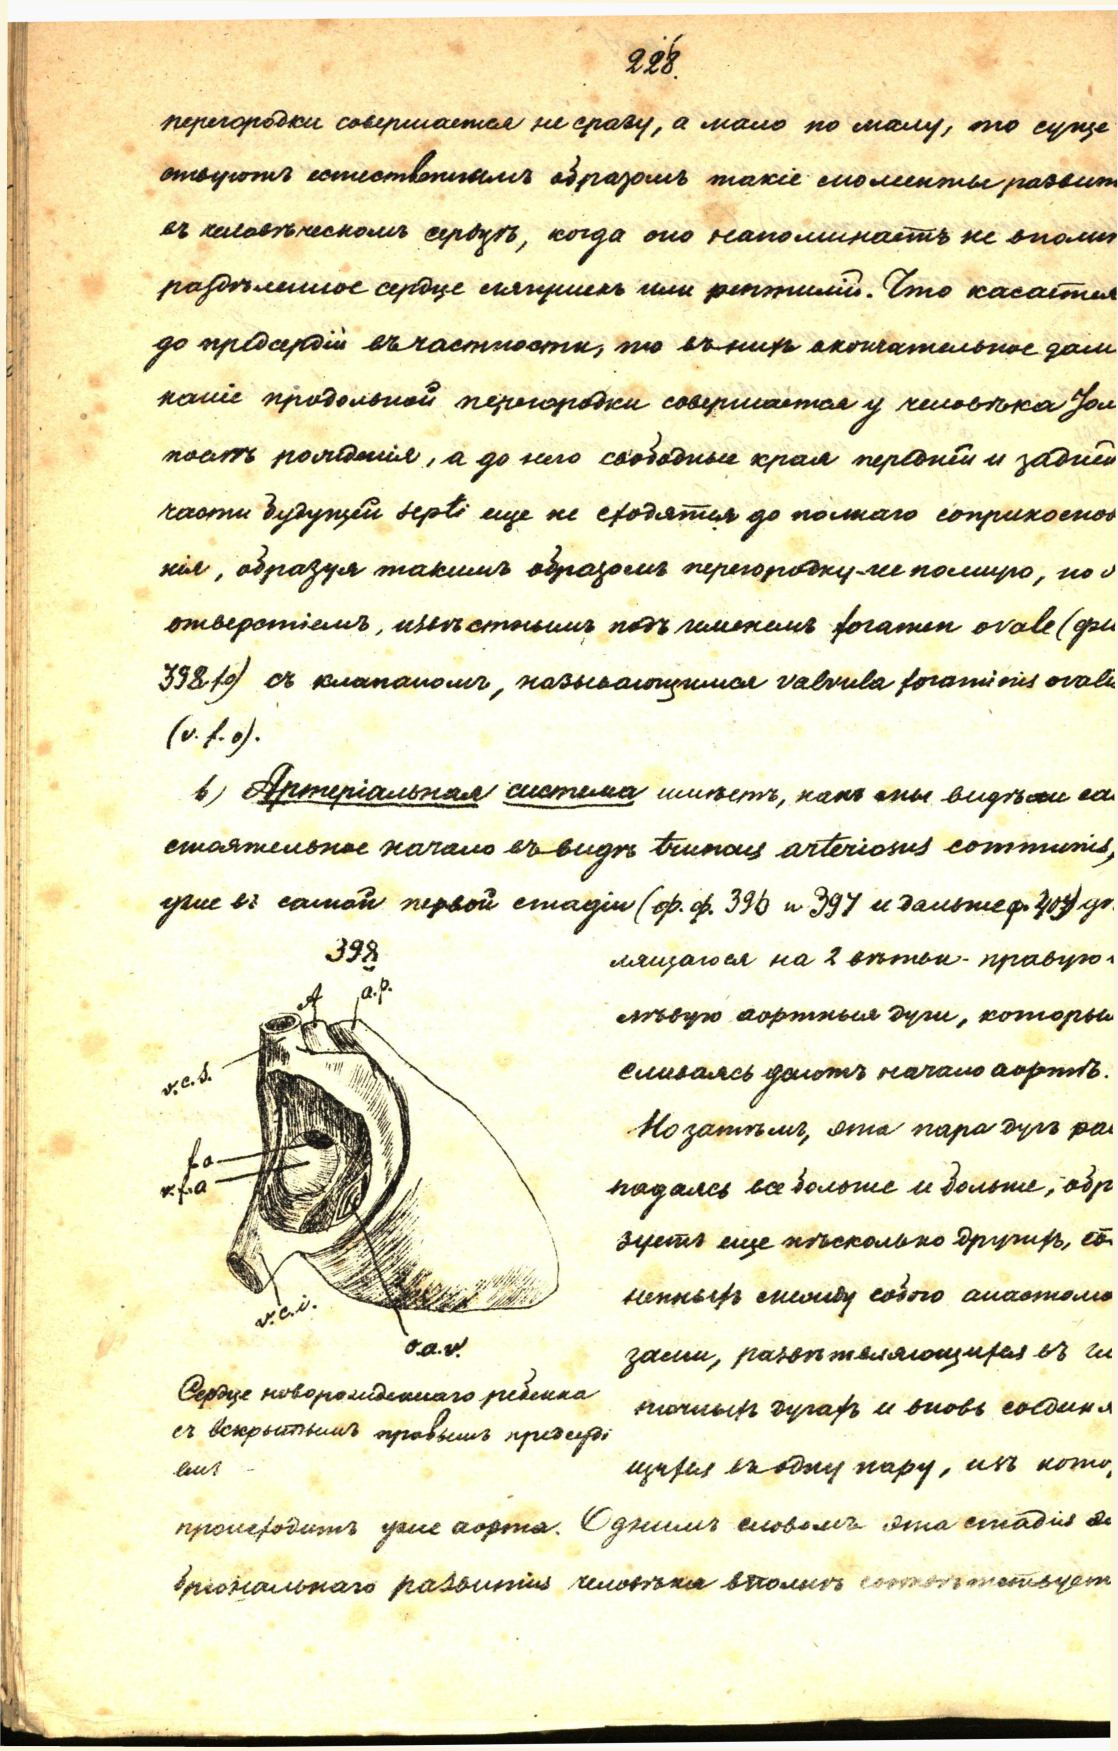 228.
перегородки совершается не сразу, а мало по малу, то суще
ствуютъ естественнымъ образомъ такіе моменты развит
въ человѣческомъ сердцѣ, когда оно напоминаетъ не вполн
раздѣленное сердце ящерицъ или рептилій. Что касается
до предсердій въ частности, то въ нихъ окончательное замы
каніе продольной перегородки совершается у человѣка
послѣ рожденія, а до него свободные края передней и задней
части будущей septi еще не сходятся до полнаго соприкоснов
нія, образуя такимъ образомъ перегородку не полную, но с
отверстіемъ, извѣстнымъ подъ именемъ foramen ovale (фи
398 fo) съ клапаномъ, называющимся valvula foraminis ovalis
(v. f. o).
b) Артеріальная система имѣетъ, какъ мы видѣли са
стоятельное начало въ видѣ truncus arteriosus communis,
уже въ самой первой стадіи (ф. ф. 396 и 397 и дальше ф. 404) дѣ
398
лящагося на 2 вѣтви - правую и
лѣвую аортныя дуги, которыя
сливаясь даютъ начало аортѣ.
Но затѣмъ, эта пара дугъ рас
падаясь все больше и больше, обр
зуетъ еще нѣсколько другихъ, со
ненныхъ между собою анастомо
зами, развѣтвляющихся въ гл
точныхъ дугахъ и вновь соединя
щихся въ одну пару, изъ кото
A
a.p.
v.c.s.
f.o
v.f.o
v.c.i.
o.a.v.
Сердце новорожденнаго ребенка
съ вскрытымъ правымъ предсерді
емъ
происходитъ уже аорта. Однимъ словомъ эта стадія эм
бріональнаго развитія человѣка вполнѣ соотвѣтствуетъ